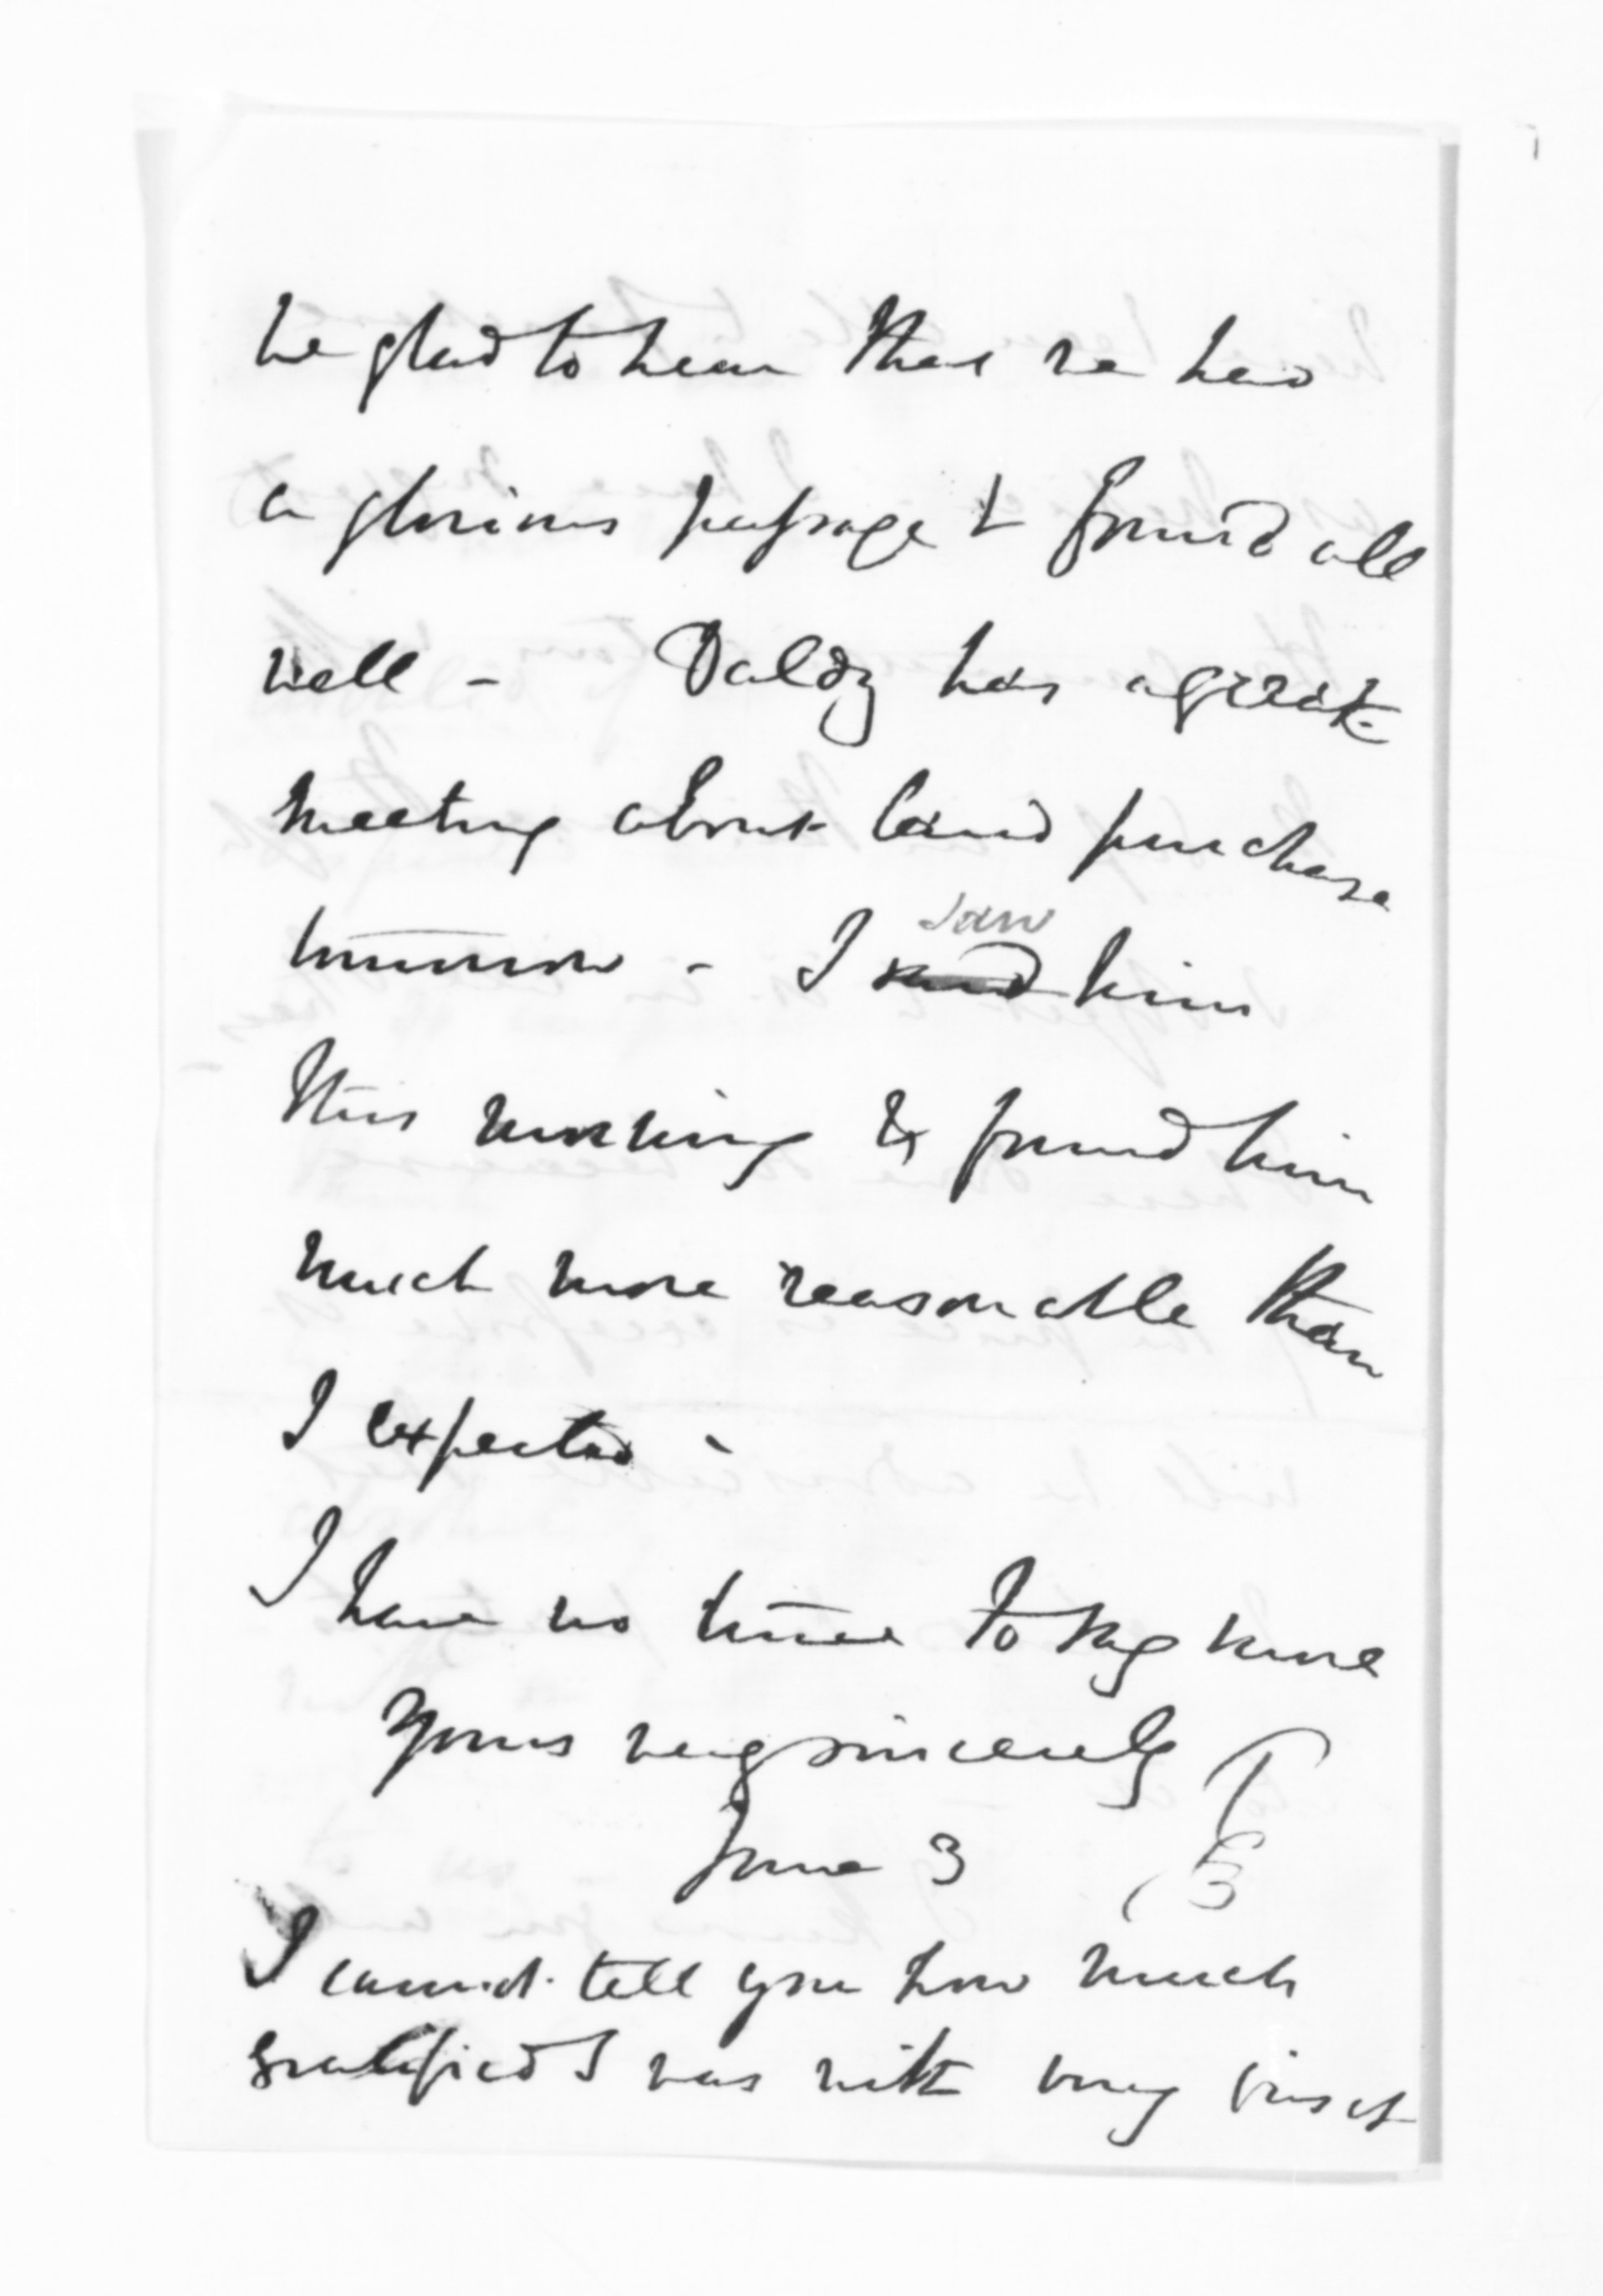 be glad to hear that we had
a glorious passage & found all
well - Daldy has a great
meeting about land purchase
tomorrow - I saw him
this morning & found him
much more reasonable than
I expected -
I have no time to say more
Yours very sincerely
June 3
I cannot tell you how much
gratified I was with my visit